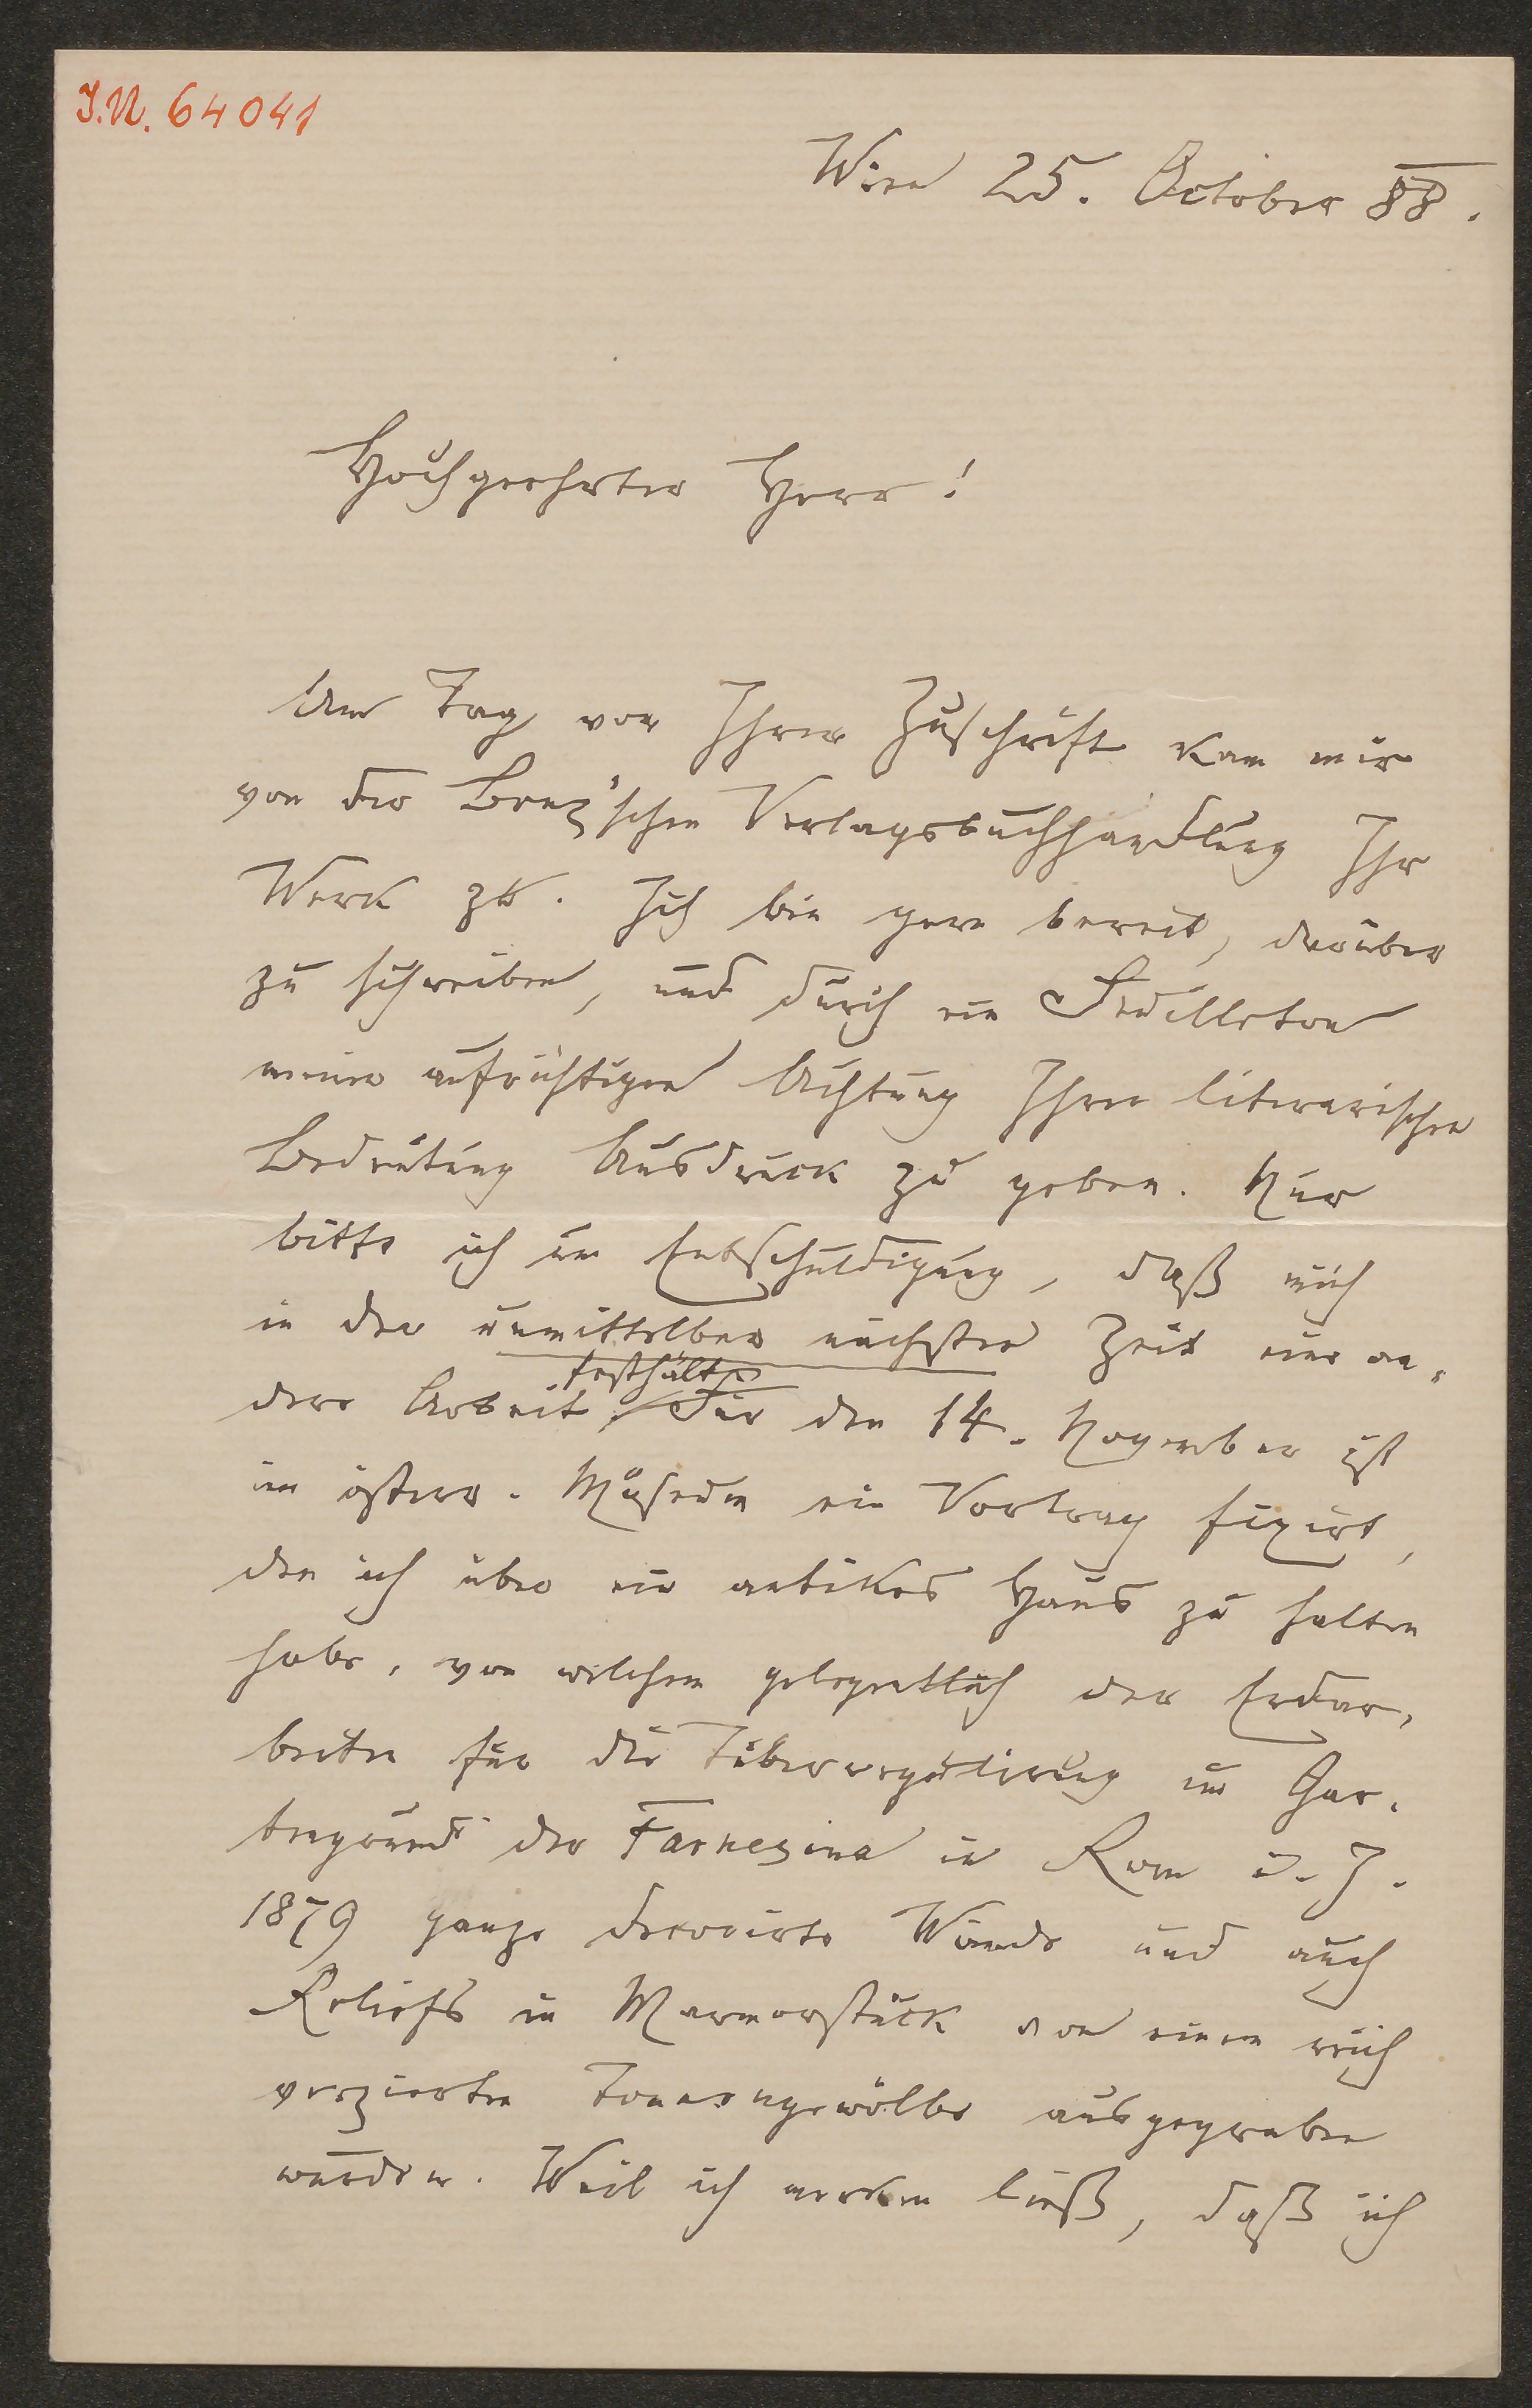 I.N. 64041
Wien 25. October 88.
Hochgeehrter Herr!
Am Tag vor Ihrer Zuschrift kam mir
von der Bonz'schen Verlagsbuchhandlung Ihr
Werk zu. Ich bin gern bereit, darüber
zu schreiben, und durch ein Feuilleton
meiner aufrichtigen Achtung Ihrer literarischen
Bedeutung Ausdruck zu geben. Nur
bitte ich um Entschuldigung, daß mich
in der unmittelbar nächsten Zeit eine an-
dere Arbeit festhält. Für den 14. November ist
im österr. Museum ein Vortrag fixirt,
den ich über ein antikes Haus zu halten
habe, von welchem gelegentlich der Erdar-
beiten für die Tiberregulirung im Gar-
tengrund der Farnesina in Rom i. J.
1879 ganze decorirte Wände und auch
Reliefs in Marmorstuck von einem reich
verzierten Tonnengewölbe ausgegraben
wurden. Weil ich merken ließ, daß ich